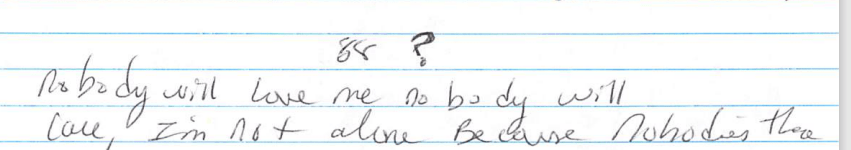 88 ?
nobody will love me no body will
care, I'm not alone Because Nobodies there